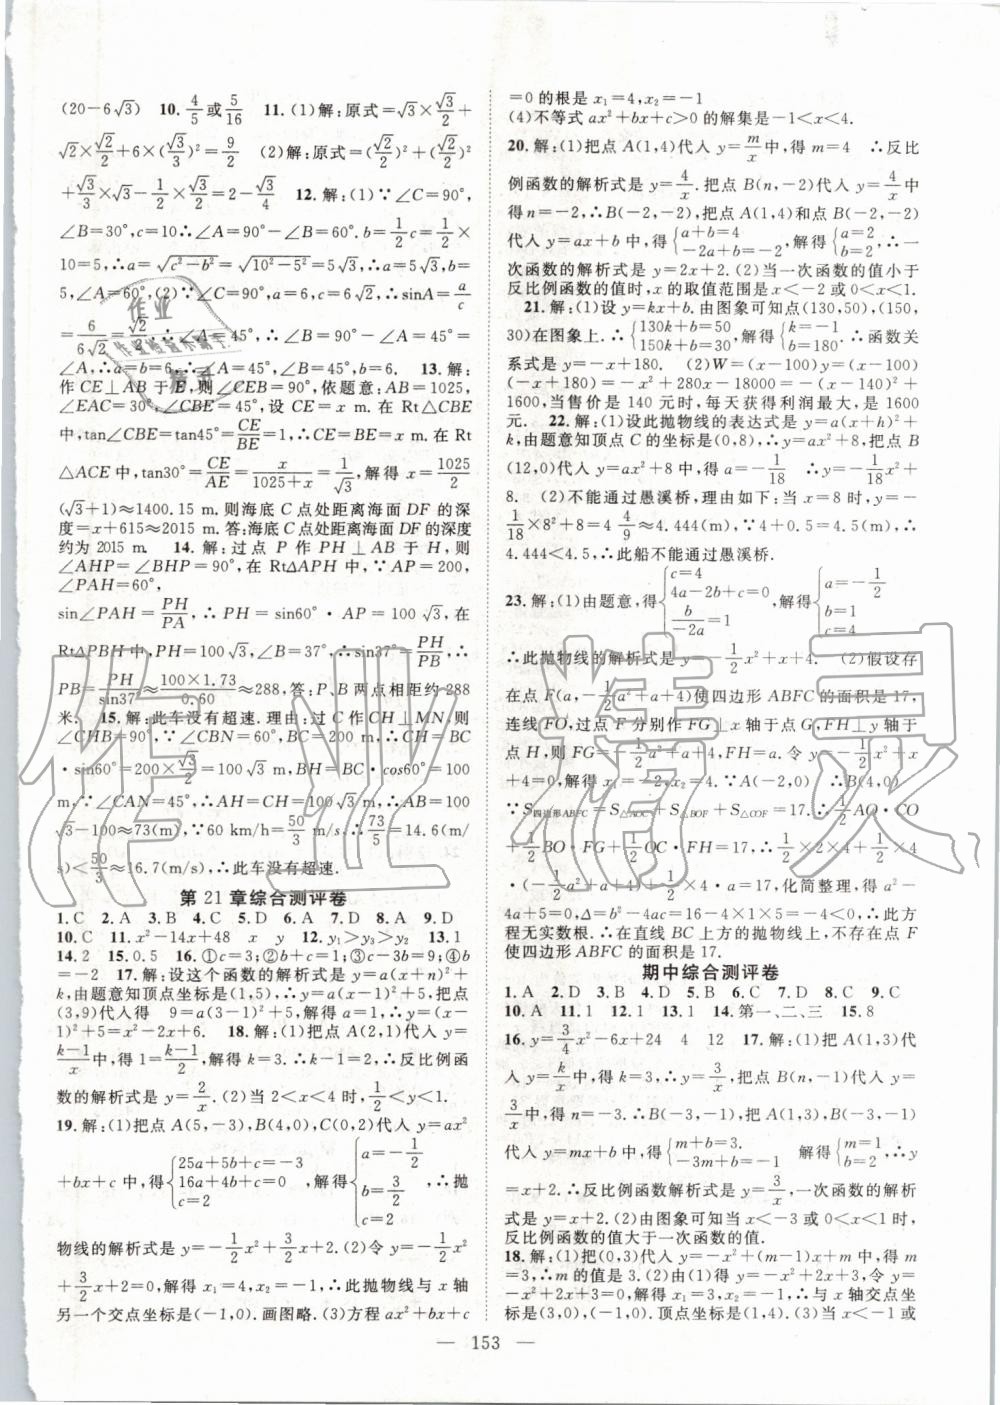 (20－6√3)　10. 4/5 或 5/16　11. (1)解：原式＝√3×√3/2＋
√2×√2/2＋6×(√3/3)²＝9/2　(2)解：原式＝(√2/2)²＋(√2/2)²
＋√3/3×√3/2－1/2×√3/2＝2－√3/4　12. 解：(1)∵∠C＝90°，
∠B＝30°，c＝10∴∠A＝90°－∠B＝60°. b＝1/2c＝1/2×
10＝5，∴a＝√(c²－b²)＝√(10²－5²)＝5√3，∴a＝5√3，b＝
5，∠A＝60°，(2)∵∠C＝90°，a＝6，c＝6√2，∴sinA＝a/c
＝6/(6√2)＝√2/2. ∴∠A＝45°，∴∠B＝90°－∠A＝45°＝
∠A，∴a＝b＝6，∴∠A＝45°，∠B＝45°，b＝6.　13. 解：
作CE⊥AB于E，则∠CEB＝90°，依题意：AB＝1025，
∠EAC＝30°，∠CBE＝45°，设CE＝x m. 在Rt△CBE
中，tan∠CBE＝tan45°＝CE/BE＝1，∴BE＝CE＝x. 在Rt
△ACE中，tan30°＝CE/AE＝x/(1025＋x)＝1/√3，解得x＝1025/2
(√3＋1)≈1400.15 m. 则海底C点处距离海面DF的深
度＝x＋615≈2015 m. 答：海底C点处距离海面DF的深度
约为2015 m.　14. 解：过点P作PH⊥AB于H，则
∠AHP＝∠BHP＝90°，在Rt△APH中，∵AP＝200，
∠PAH＝60°，
sin∠PAH＝PH/PA，∴PH＝sin60°·AP＝100√3，在
Rt△PBH中，PH＝100√3，∠B＝37°，∴sin37°＝PH/PB，∴
PB＝PH/sin37°≈100×1.73/0.60≈288，答：P、B两点相距约288
米.　15. 解：此车没有超速. 理由：过C作CH⊥MN，则
∠CHB＝90°，∵∠CBN＝60°，BC＝200 m，∴CH＝BC
·sin60°＝200×√3/2＝100√3 m，BH＝BC·cos60°＝100
m，∵∠CAN＝45°，∴AH＝CH＝100√3 m，∴AB＝100
√3－100≈73(m)，∵60 km/h＝50/3 m/s，∴73/5＝14.6(m/
s)＜50/3≈16.7(m/s)，∴此车没有超速.
第21章综合测评卷
1. C　2. A　3. B　4. C　5. D　6. A　7. D　8. A　9. D
10. C　11. x²－14x＋48　x　y　12. y₁＞y₃＞y₂　13. 1
14. 2　15. 0.5　16. ①c＝3；②b＋c＝1；③c－3b＝9；④b＝
－2，c＝3　17. 解：设这个函数的解析式是y＝a(x＋h)²＋
k，由题意知顶点坐标是(1，5)，∴y＝a(x－1)²＋5，把点
(3，9)代入得　9＝a(3－1)²＋5，解得a＝1，∴y＝(x－
1)²＋5＝x²－2x＋6.　18. 解：(1)把点A(2，1)代入y＝
(k－1)/x中，得1＝(k－1)/2，解得k＝3. ∴k－1＝2，∴反比例函
数的解析式是y＝2/x. (2)当2＜x＜4时，1/2＜y＜1.
19. 解：(1)把点A(5，－3)，B(4，0)，C(0，2)代入y＝ax²
＋bx＋c中，得{25a＋5b＋c＝－3　16a＋4b＋c＝0　c＝2，解得{a＝－1/2　b＝3/2　c＝2，∴抛
物线的解析式是y＝－1/2x²＋3/2x＋2. (2)令－1/2x²＋
3/2x＋2＝0，解得x₁＝4，x₂＝－1，∴此抛物线与x轴
另一个交点坐标是(－1，0). 画图略. (3)方程ax²＋bx＋c
＝0的根是x₁＝4，x₂＝－1
(4)不等式ax²＋bx＋c＞0的解集是－1＜x＜4.
20. 解：(1)把点A(1，4)代入y＝m/x中，得m＝4　∴反比
例函数的解析式是y＝4/x. 把点B(n，－2)代入y＝4/x中
得n＝－2，∴B(－2，－2)，把点A(1，4)和点B(－2，－2)
代入y＝ax＋b中，得{a＋b＝4　－2a＋b＝－2，解得{a＝2　b＝2，∴一
次函数的解析式是y＝2x＋2. (2)当一次函数的值小于
反比例函数的值时，x的取值范围是x＜－2或0＜x＜1.
21. 解：(1)设y＝kx＋b. 由图象可知点(130，50)，(150，
30)在图象上. ∴{130k＋b＝50　150k＋b＝30，解得{k＝－1　b＝180. ∴函数关
系式是y＝－x＋180.　(2)W＝(x－100)y＝(x－100)
(－x＋180)＝－x²＋280x－18000＝－(x－140)²＋
1600，当售价是140元时，每天获得利润最大，是1600
元.　22. 解：(1)设此抛物线的表达式是y＝a(x＋h)²＋
k，由题意知顶点C的坐标是(0，8)，∴y＝ax²＋8，把点B
(12，0)代入y＝ax²＋8中，得a＝－1/18　∴y＝－1/18x²＋
8.　(2)不能通过愚溪桥，理由如下：当x＝8时，y＝－
1/18×8²＋8＝4 4/9≈4.444(m)，∵4＋0.5＝4.5，∴
4.444＜4.5，∴此船不能通过愚溪桥.
23. 解：(1)由题意，得{c＝4　4a－2b＋c＝0　b/－2a＝1，解得{a＝－1/2　b＝1　c＝4
∴此抛物线的解析式是y＝－1/2x²＋x＋4.　(2)假设存
在点F(a，－1/2a²＋a＋4)使四边形ABFC的面积是17，
连线FO，过点F分别作FG⊥x轴于点G，FH⊥y轴于
点H，则FG＝－1/2a²＋a＋4，FH＝a. 令y＝－1/2x²＋x
＋4＝0，解得x₁＝－2，x₂＝4. ∵A(－2，0)　∴B(4，0)
∵S四边形ABFC＝S△AOC＋S△BOF＋S△COF＝17. ∴1/2AO·CO
＋1/2BO·FG＋1/2OC·FH＝17，∴1/2×2×4＋1/2×4
·(－1/2a²＋a＋4)＋1/2×4×a＝17，化简整理，得a²－
4a＋5＝0，∵Δ＝b²－4ac＝16－4×1×5＝－4＜0，∴此方
程无实数根. ∴在直线BC上方的抛物线上，不存在点F
使四边形ABFC的面积是17.
期中综合测评卷
1. A　2. D　3. B　4. B　5. D　6. D　7. B　8. C　9. C
10. A　11. 1　12. 1　13. 1　14. 第一、二、三　15. 8
16. y＝3/4x²－6x＋24　4　12　17. 解：(1)把点A(1，3)代
入y＝k/x中，得k＝3，∴y＝3/x，把点B(n，－1)代入y＝
3/x中，得n＝－3. ∴B(－3，－1)，把A(1，3)，B(－3，－1)
代入y＝mx＋b中，得{m＋b＝3.　－3m＋b＝－1　解得{m＝1　b＝2，∴y＝
x＋2. ∴反比例函数解析式是y＝3/x，一次函数的解析
式是y＝x＋2. (2)由图象可知当x＜－3或0＜x＜1时，
反比例函数的值大于一次函数的值.
18. 解：(1)把(0，3)代入y＝－x²＋(m－1)x＋m中，得m
＝3，∴m的值是3. (2)由(1)得y＝－x²＋2x＋3，令－x²
＋2x＋3＝0，解得x₁＝3，x₂＝－1，∴与x轴交点坐
标是(3，0)，(－1，0). 顶点坐标是(1，4). (3)当x＜－1或
153
作业精灵